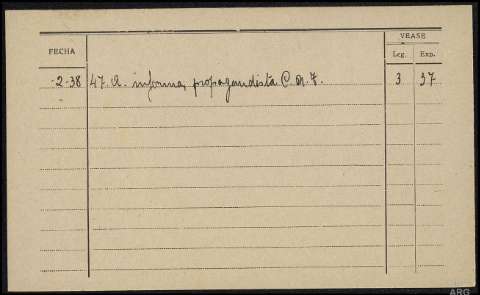 VEASE
FECHA
Leg. Exp.
-2-38 47. a. informa, propagandista C. N. T. 3 37
ARG